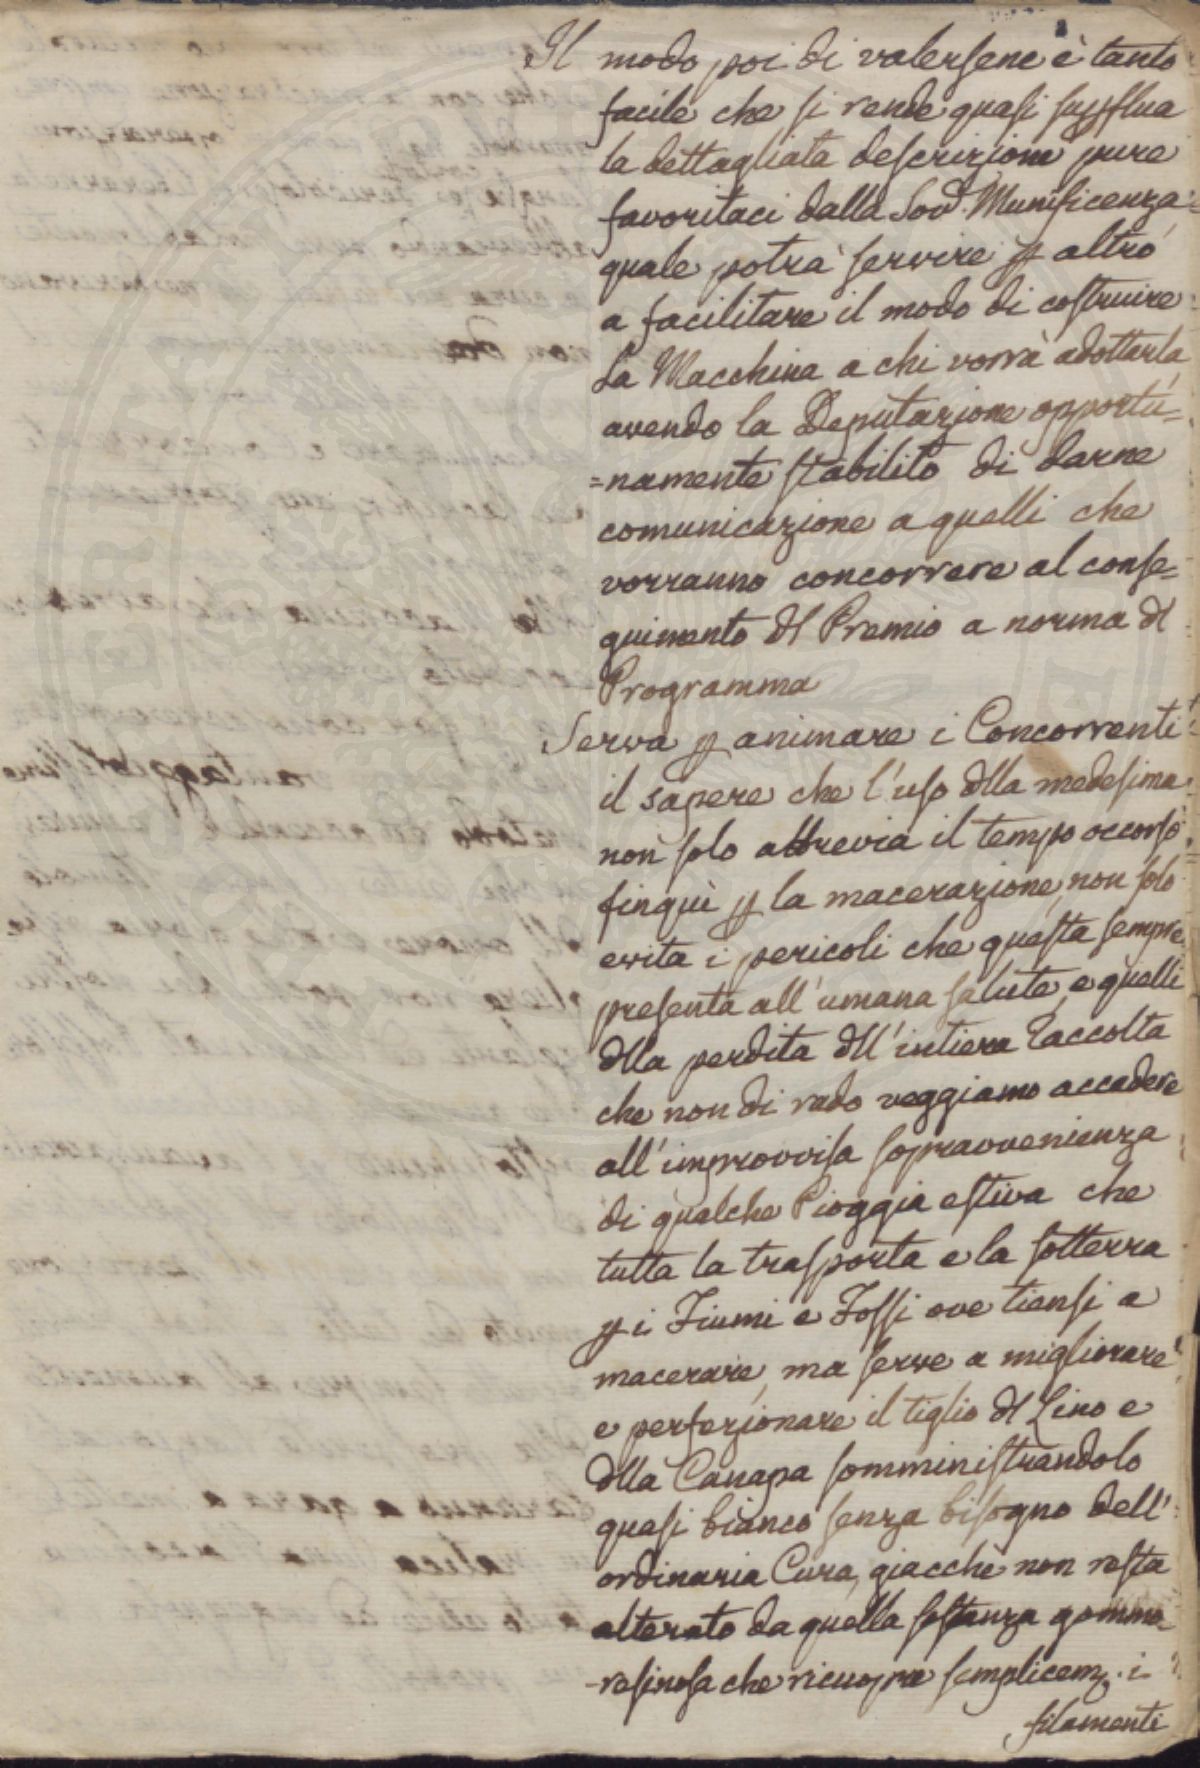 Il modo poi di valersene è tanto
facile che si rende quasi supflua
la dettagliata descrizione pure
favoritaci dalla Sovᵃ. Munificenza
quale potrà servire p altro
a facilitare il modo di costruire
La Macchina a chi vorrà adottarla
avendo la Deputazione opportu=
=namente stabilito di darne
comunicazione a quelli che
vorranno concorrere al conse=
guimento dl Premio a norma dl
Programma
Serva p animare i Concorrenti
il sapere che l'uso dlla medesima
non solo abbrevia il tempo occorso
finqui p la macerazione, non solo
evita i pericoli che questa sempre
presenta all'umana salute, e quelli
dlla perdita dll'intiera Raccolta
che non di rado veggiamo accadere
all'improvvisa sopravvenienza
di qualche Pioggia estiva che
tutta la trasporta e la sotterra
p i Fiumi e Fossi ove tiensi a
macerare, ma serve a migliorare
e perfezionare il tiglio dl Lino e
dlla Canapa somministrandolo
quasi bianco senza bisogno dell'
ordinaria Cura, giacchè non resta
alterato da quella sostanza gommo
-resinosa che ricuopre semplicemᵉ. i
filamenti